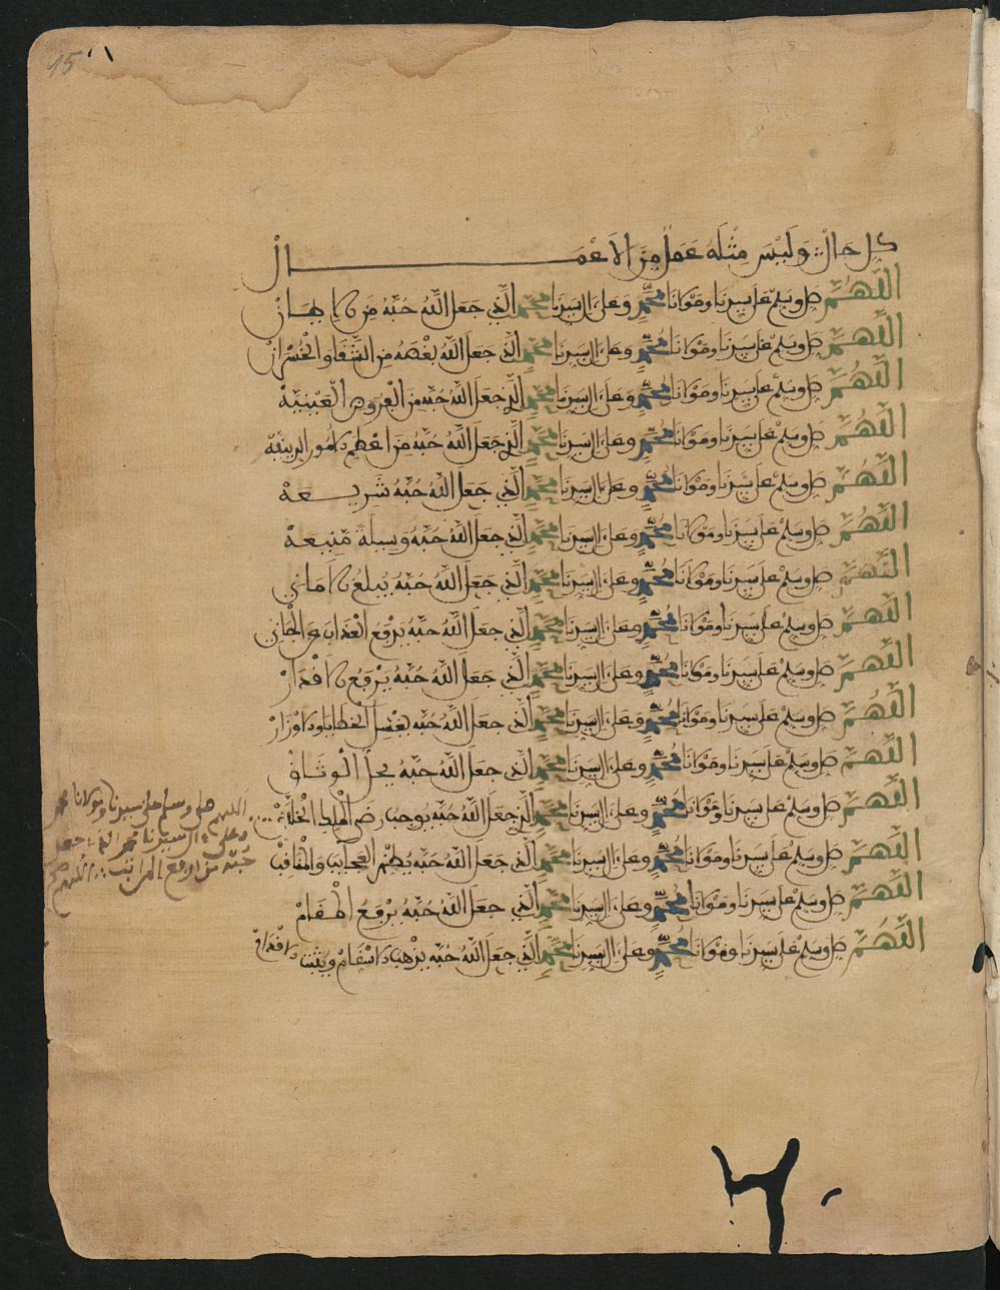 كل حال وليس مثله عمل من الاعمال
اللهم صل وسلم على سيدنا ومولانا محمد وعلى ءال سيدنا محمد الذي جعل الله حبه من الايمان
اللهم صل وسلم على سيدنا ومولانا محمد وعلى ءال سيدنا محمد الذي جعل الله بغضه من الشقا والخسران
اللهم صل وسلم على سيدنا ومولانا محمد وعلى ءال سيدنا محمد الذي جعل الله حبه من الفروض العينية
اللهم صل وسلم على سيدنا ومولانا محمد وعلى ءال سيدنا محمد الذي جعل الله حبه من اعظم الامور الدينية
اللهم صل وسلم على سيدنا ومولانا محمد وعلى ءال سيدنا محمد الذي جعل الله حبه شريعة
اللهم صل وسلم على سيدنا ومولانا محمد وعلى ءال سيدنا محمد الذي جعل الله حبه وسيلة منيعة
اللهم صل وسلم على سيدنا ومولانا محمد وعلى ءال سيدنا محمد الذي جعل الله حبه يبلغ الاماني
اللهم صل وسلم على سيدنا ومولانا محمد وعلى ءال سيدنا محمد الذي جعل الله حبه يرفع العذاب عن الجاني
اللهم صل وسلم على سيدنا ومولانا محمد وعلى ءال سيدنا محمد الذي جعل الله حبه يرفع الاقدار
اللهم صل وسلم على سيدنا ومولانا محمد وعلى ءال سيدنا محمد الذي جعل الله حبه يغسل الخطايا والاوزار
اللهم صل وسلم على سيدنا ومولانا محمد وعلى ءال سيدنا محمد الذي جعل الله حبه يحل الوثاق
اللهم صل وسلم على سيدنا ومولانا محمد وعلى ءال سيدنا محمد الذي جعل الله حبه يوجب رضى الملك الخلاق
اللهم صل وسلم على سيدنا ومولانا محمد وعلى ءال سيدنا محمد الذي جعل الله حبه يظهر العجايب والمناقب
اللهم صل وسلم على سيدنا ومولانا محمد وعلى ءال سيدنا محمد الذي جعل الله حبه يرفع المقام
اللهم صل وسلم على سيدنا ومولانا محمد وعلى ءال سيدنا محمد الذي جعل الله حبه يذهب الاسقام ويثبت الاقدام
اللهم صل وسلم على سيدنا ومولانا محمد
وعلى ءال سيدنا محمد الذي جعل
حبه من ارفع المراتب اللهم صل
15